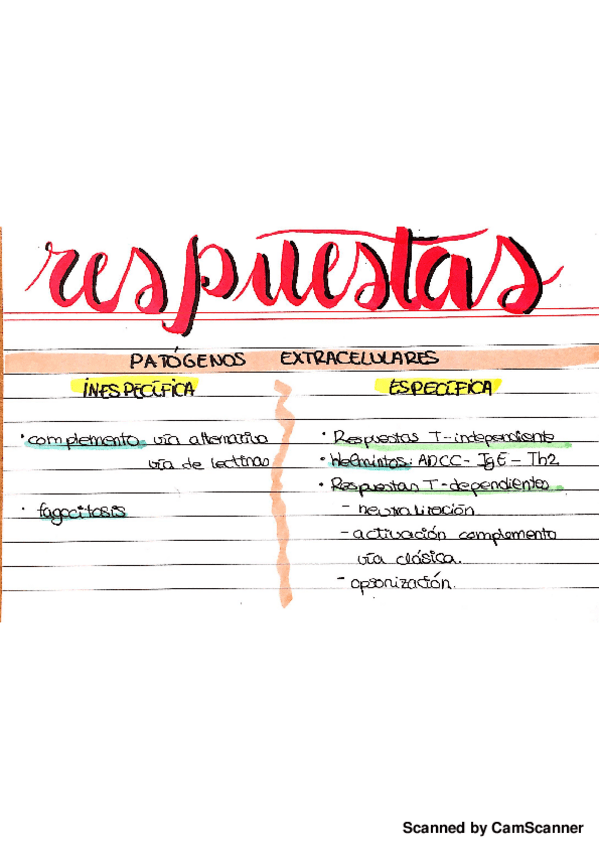 respuestas
PATÓGENOS EXTRACELULARES
INESPECÍFICA
• complemento vía alternativa
vía de lectinas
• fagocitosis
ESPECÍFICA
• Respuestas T-independiente
• Helmintos: ADCC - IgE - Th2
• Respuestas T-dependientes
- neutralización
- activación complemento
vía clásica.
- opsonización.
Scanned by CamScanner